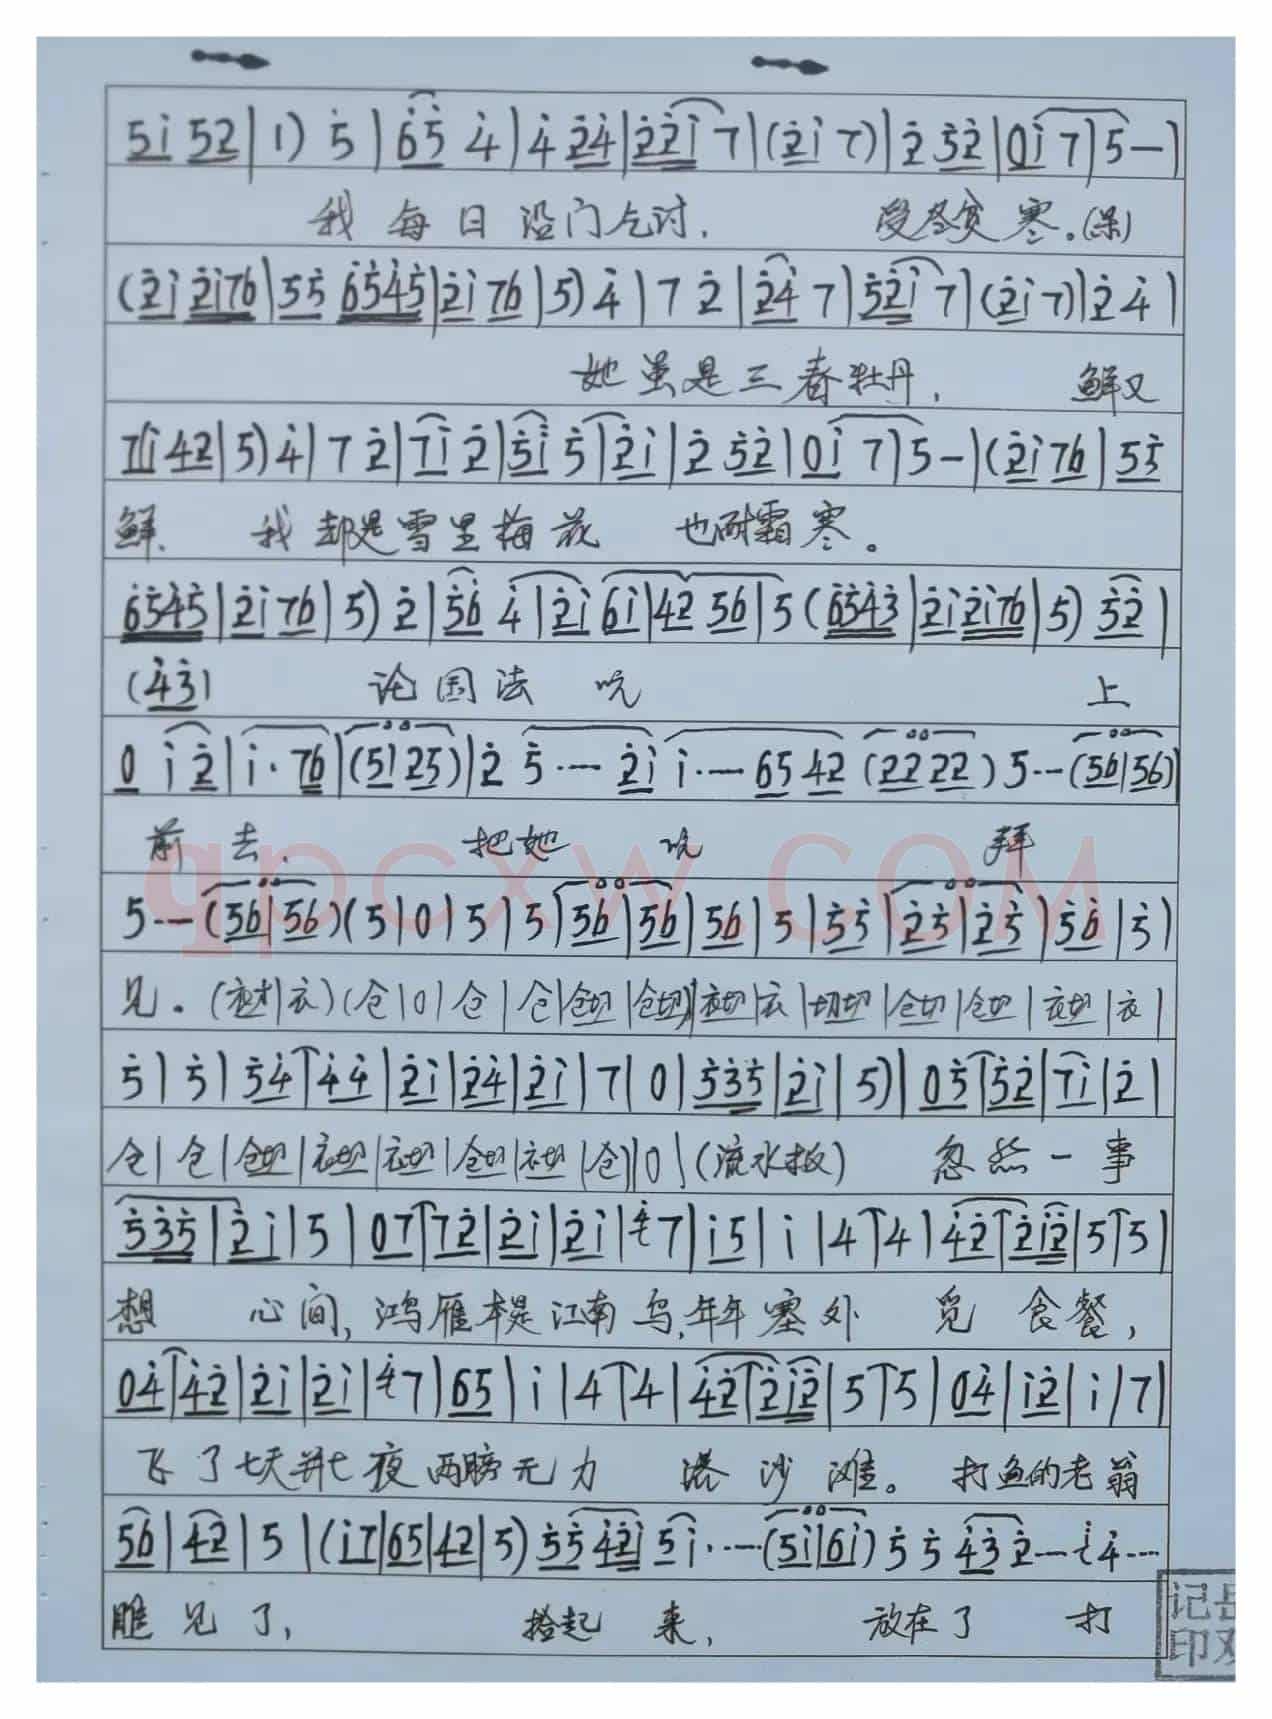 5i 52 | 1) 5 | 65 4 | 4 24 | 22i 7 | (2i 7) | 2 32 | 0i 7 | 5 — |
我每日沿门乞讨, 受尽贫寒。
(2i 2i76 | 55 6545 | 2i 76 | 5) 4 | 7 2 | 24 7 | 52i 7 | (2i 7) | 2 4 |
她虽是三春牡丹, 鲜又
7(i 42 | 5) 4 | 7 2 | 7i 2 | 5i 5 | 2i | 2 52 | 0i 7 | 5 — | (2i 76 | 55
鲜、 我却是雪里梅花 也耐霜寒。
6545 | 2i 76 | 5) 2 | 56 4 | 2i 6i | 42 56 | 5 (6543 | 2i 2i76 | 5) 52 |
(43) 论国法吭 上
0 i2 | i· 76 | (5i 25) | 2 5·— 2i i·— 65 42 (22 22) 5·— (56 | 56)
前去、 把她 吭 拜
qpcxw.com
5·— (56 | 56) (5 | 0 | 5 | 5 56 | 56 | 56 | 5 | 55 | 25 | 25 | 56 | 5 |
见。(衣才 | 衣) (仓 | 0 | 仓 | 仓 | 仓切 | 仓切 | 衣切 | 衣 | 切切 | 仓切 | 仓切 | 衣切 | 衣 |
5 | 5 | 54 | 44 | 2i | 24 | 2i | 7 | 0 | 535 | 2i | 5) | 05 | 52 | 7i | 2 |
仓 | 仓 | 仓切 | 衣切 | 衣切 | 仓切 | 衣切 | 仓) | 0 | (流水板) 忽然一事
535 | 2i | 5 | 07 | 72 | 2i | 2i | 7 | i5 | i | 4 | 4 | 42 | 2i2 | 5 | 5 |
想 心间, 鸿雁本是江南鸟, 年年塞外 觅食餐,
04 | 42 | 2i | 2i | 7 | 65 | i | 4 | 4 | 42 | 2i2 | 5 | 5 | 04 | i2 | i | 7 |
飞了七天并七夜两膀无力 落沙滩。 打鱼的老翁
56 | 42 | 5 | (i7 | 65 | 42 | 5) 55 42i 5i·— (5i | 6i) 5 5 43 2 — 4·—
瞧见了, 拾起来, 放在了 打
记
印